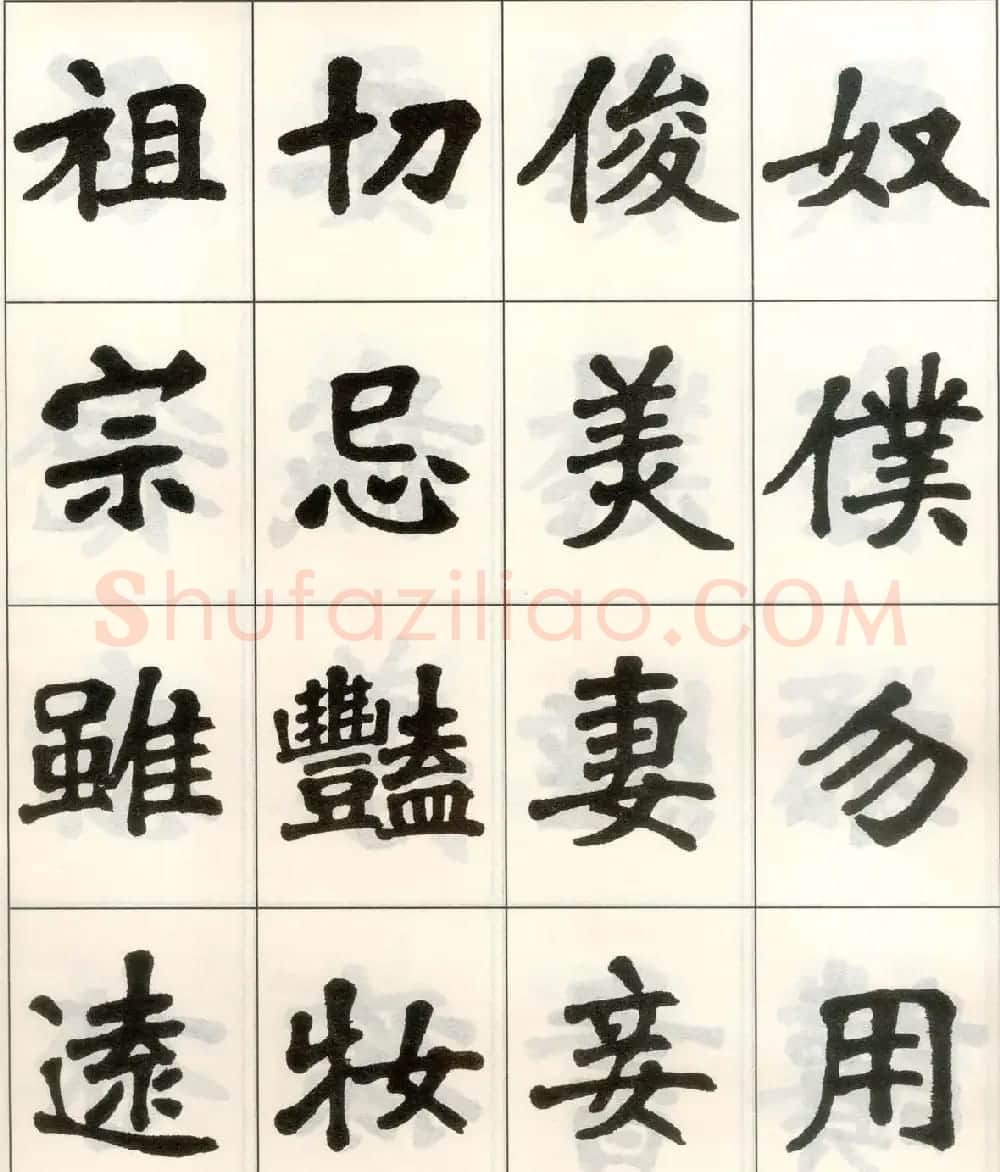 奴僕勿用
俊美妻妾
切忌豔妝
祖宗雖遠
Shufaziliao.COM